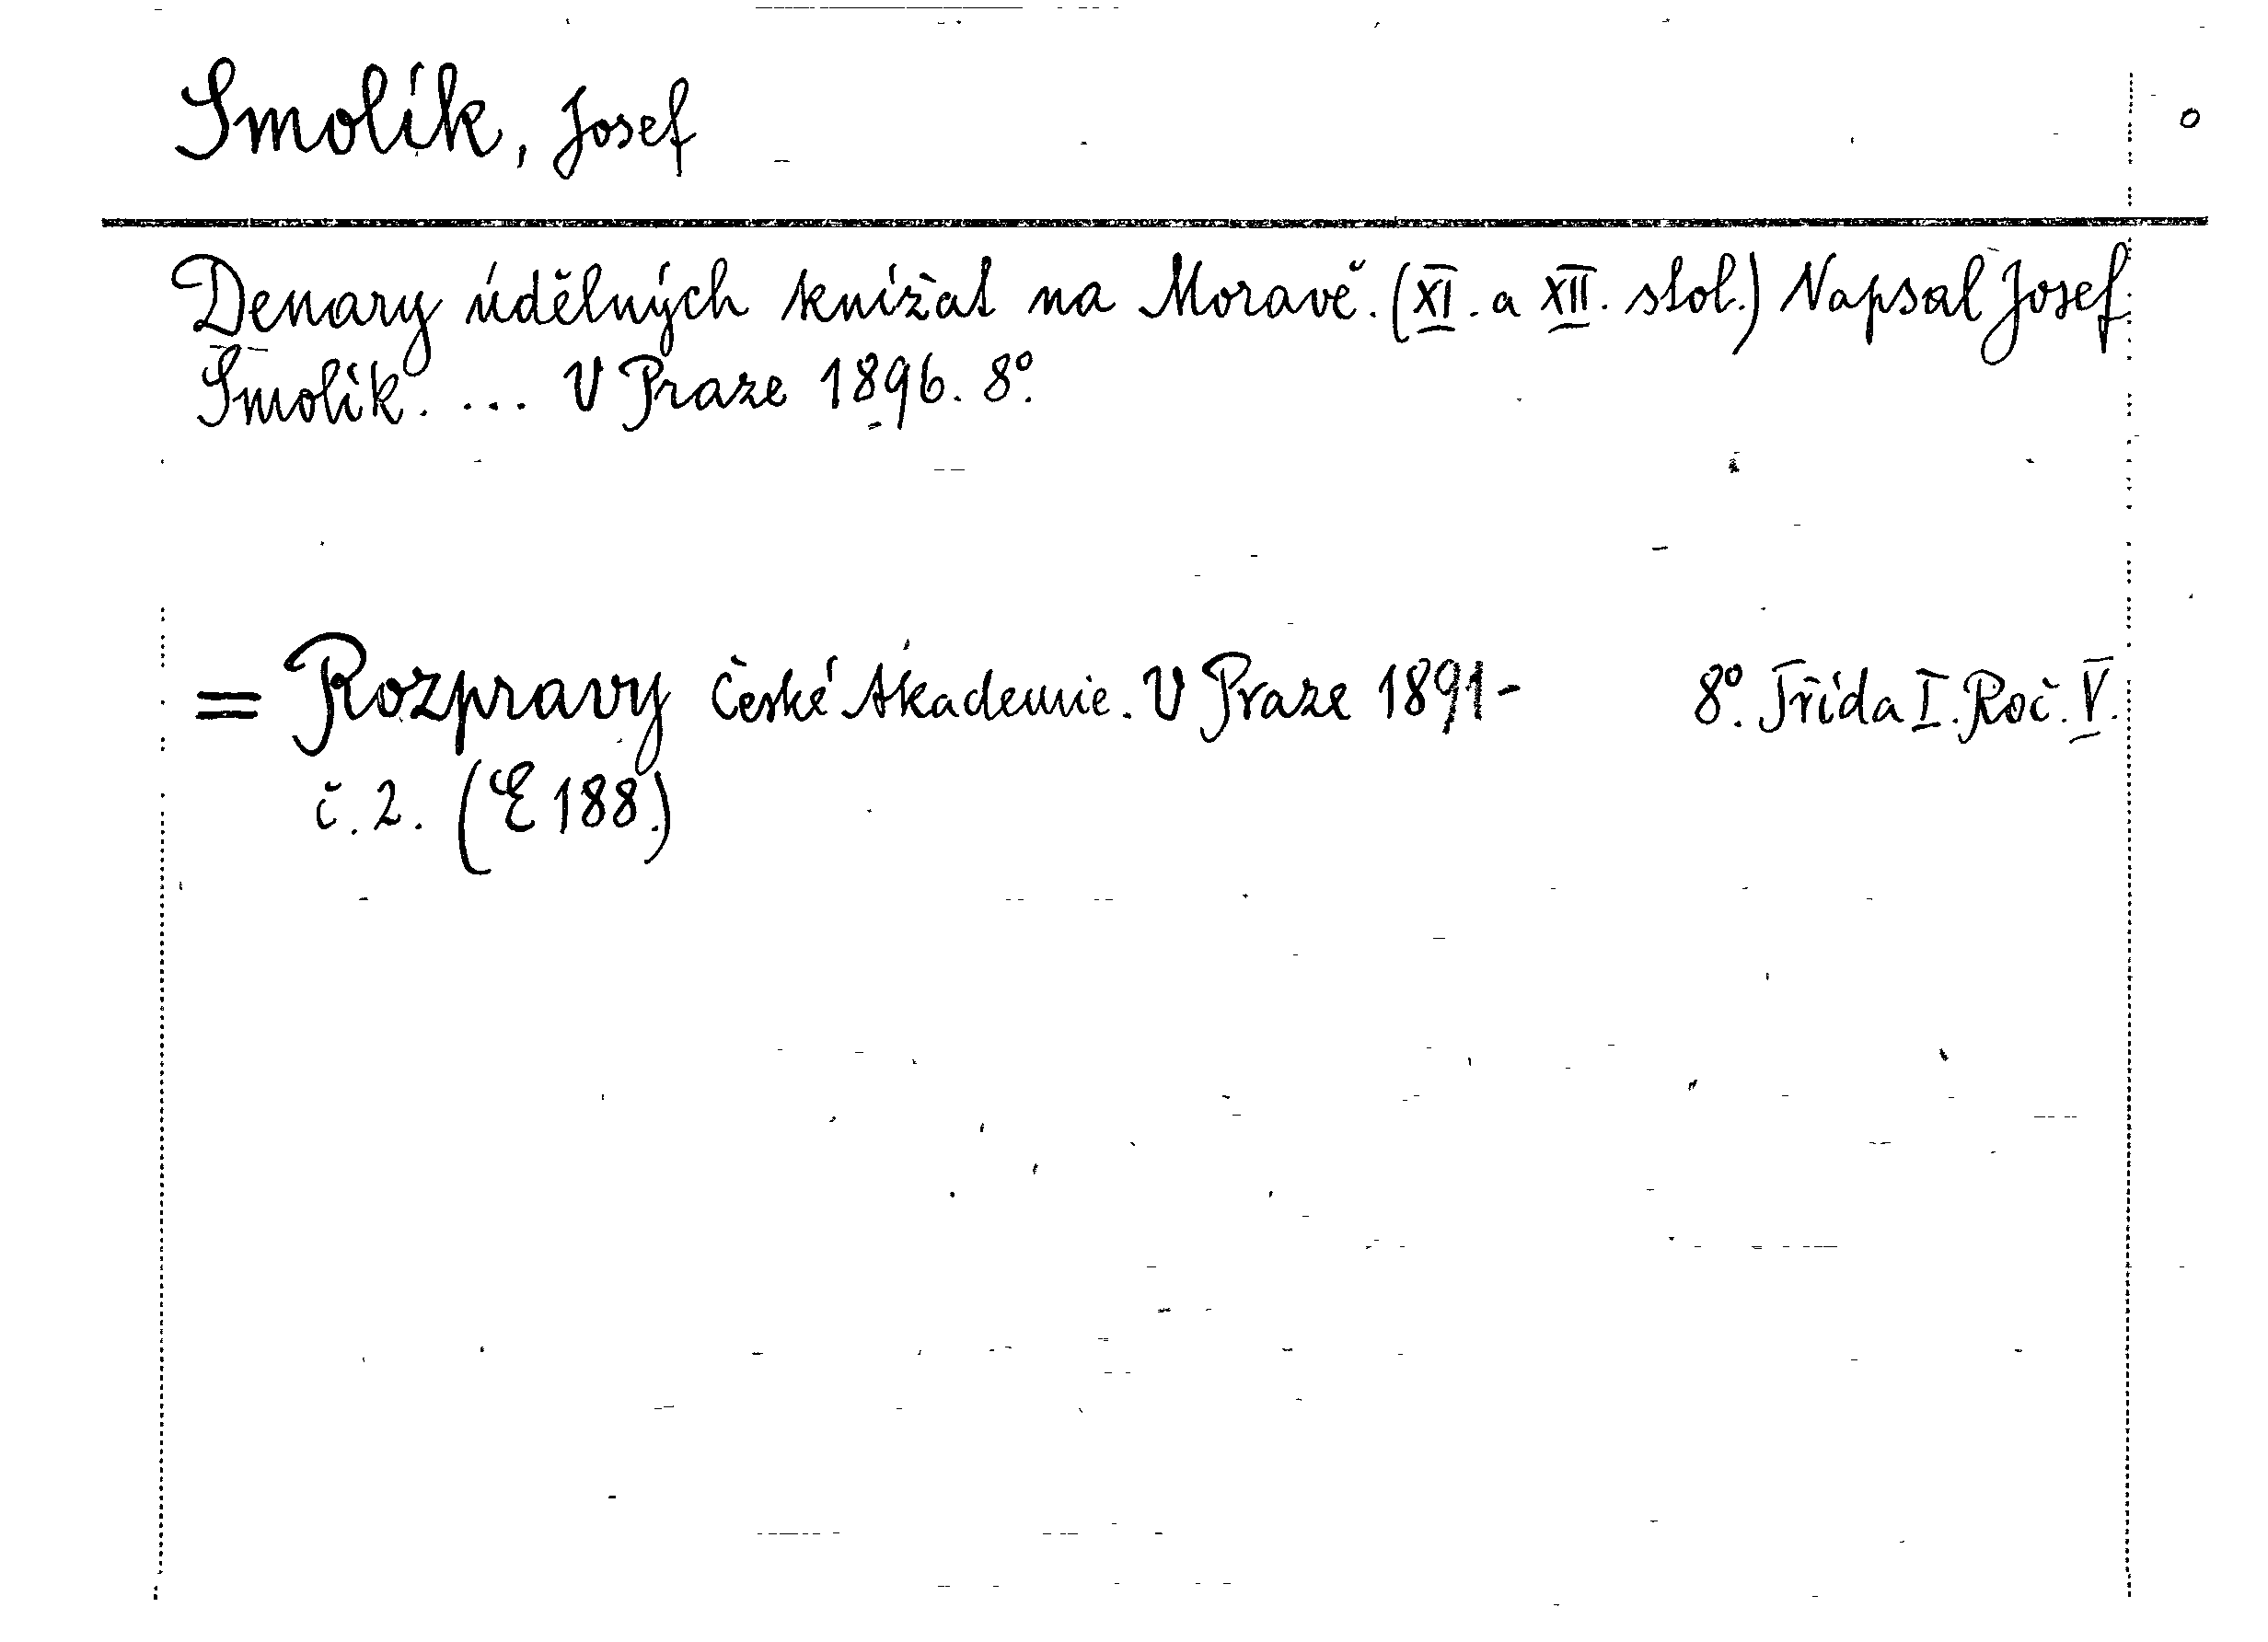 Smolík, Josef
o
Denary údělných knížat na Moravě. (XI. a XII. stol.) Napsal Josef
Smolík. ... V Praze 1896. 8°.
= Rozpravy České Akademie. V Praze 1891- 8°. Třída I. Roč. V.
č. 2. (E 188.)